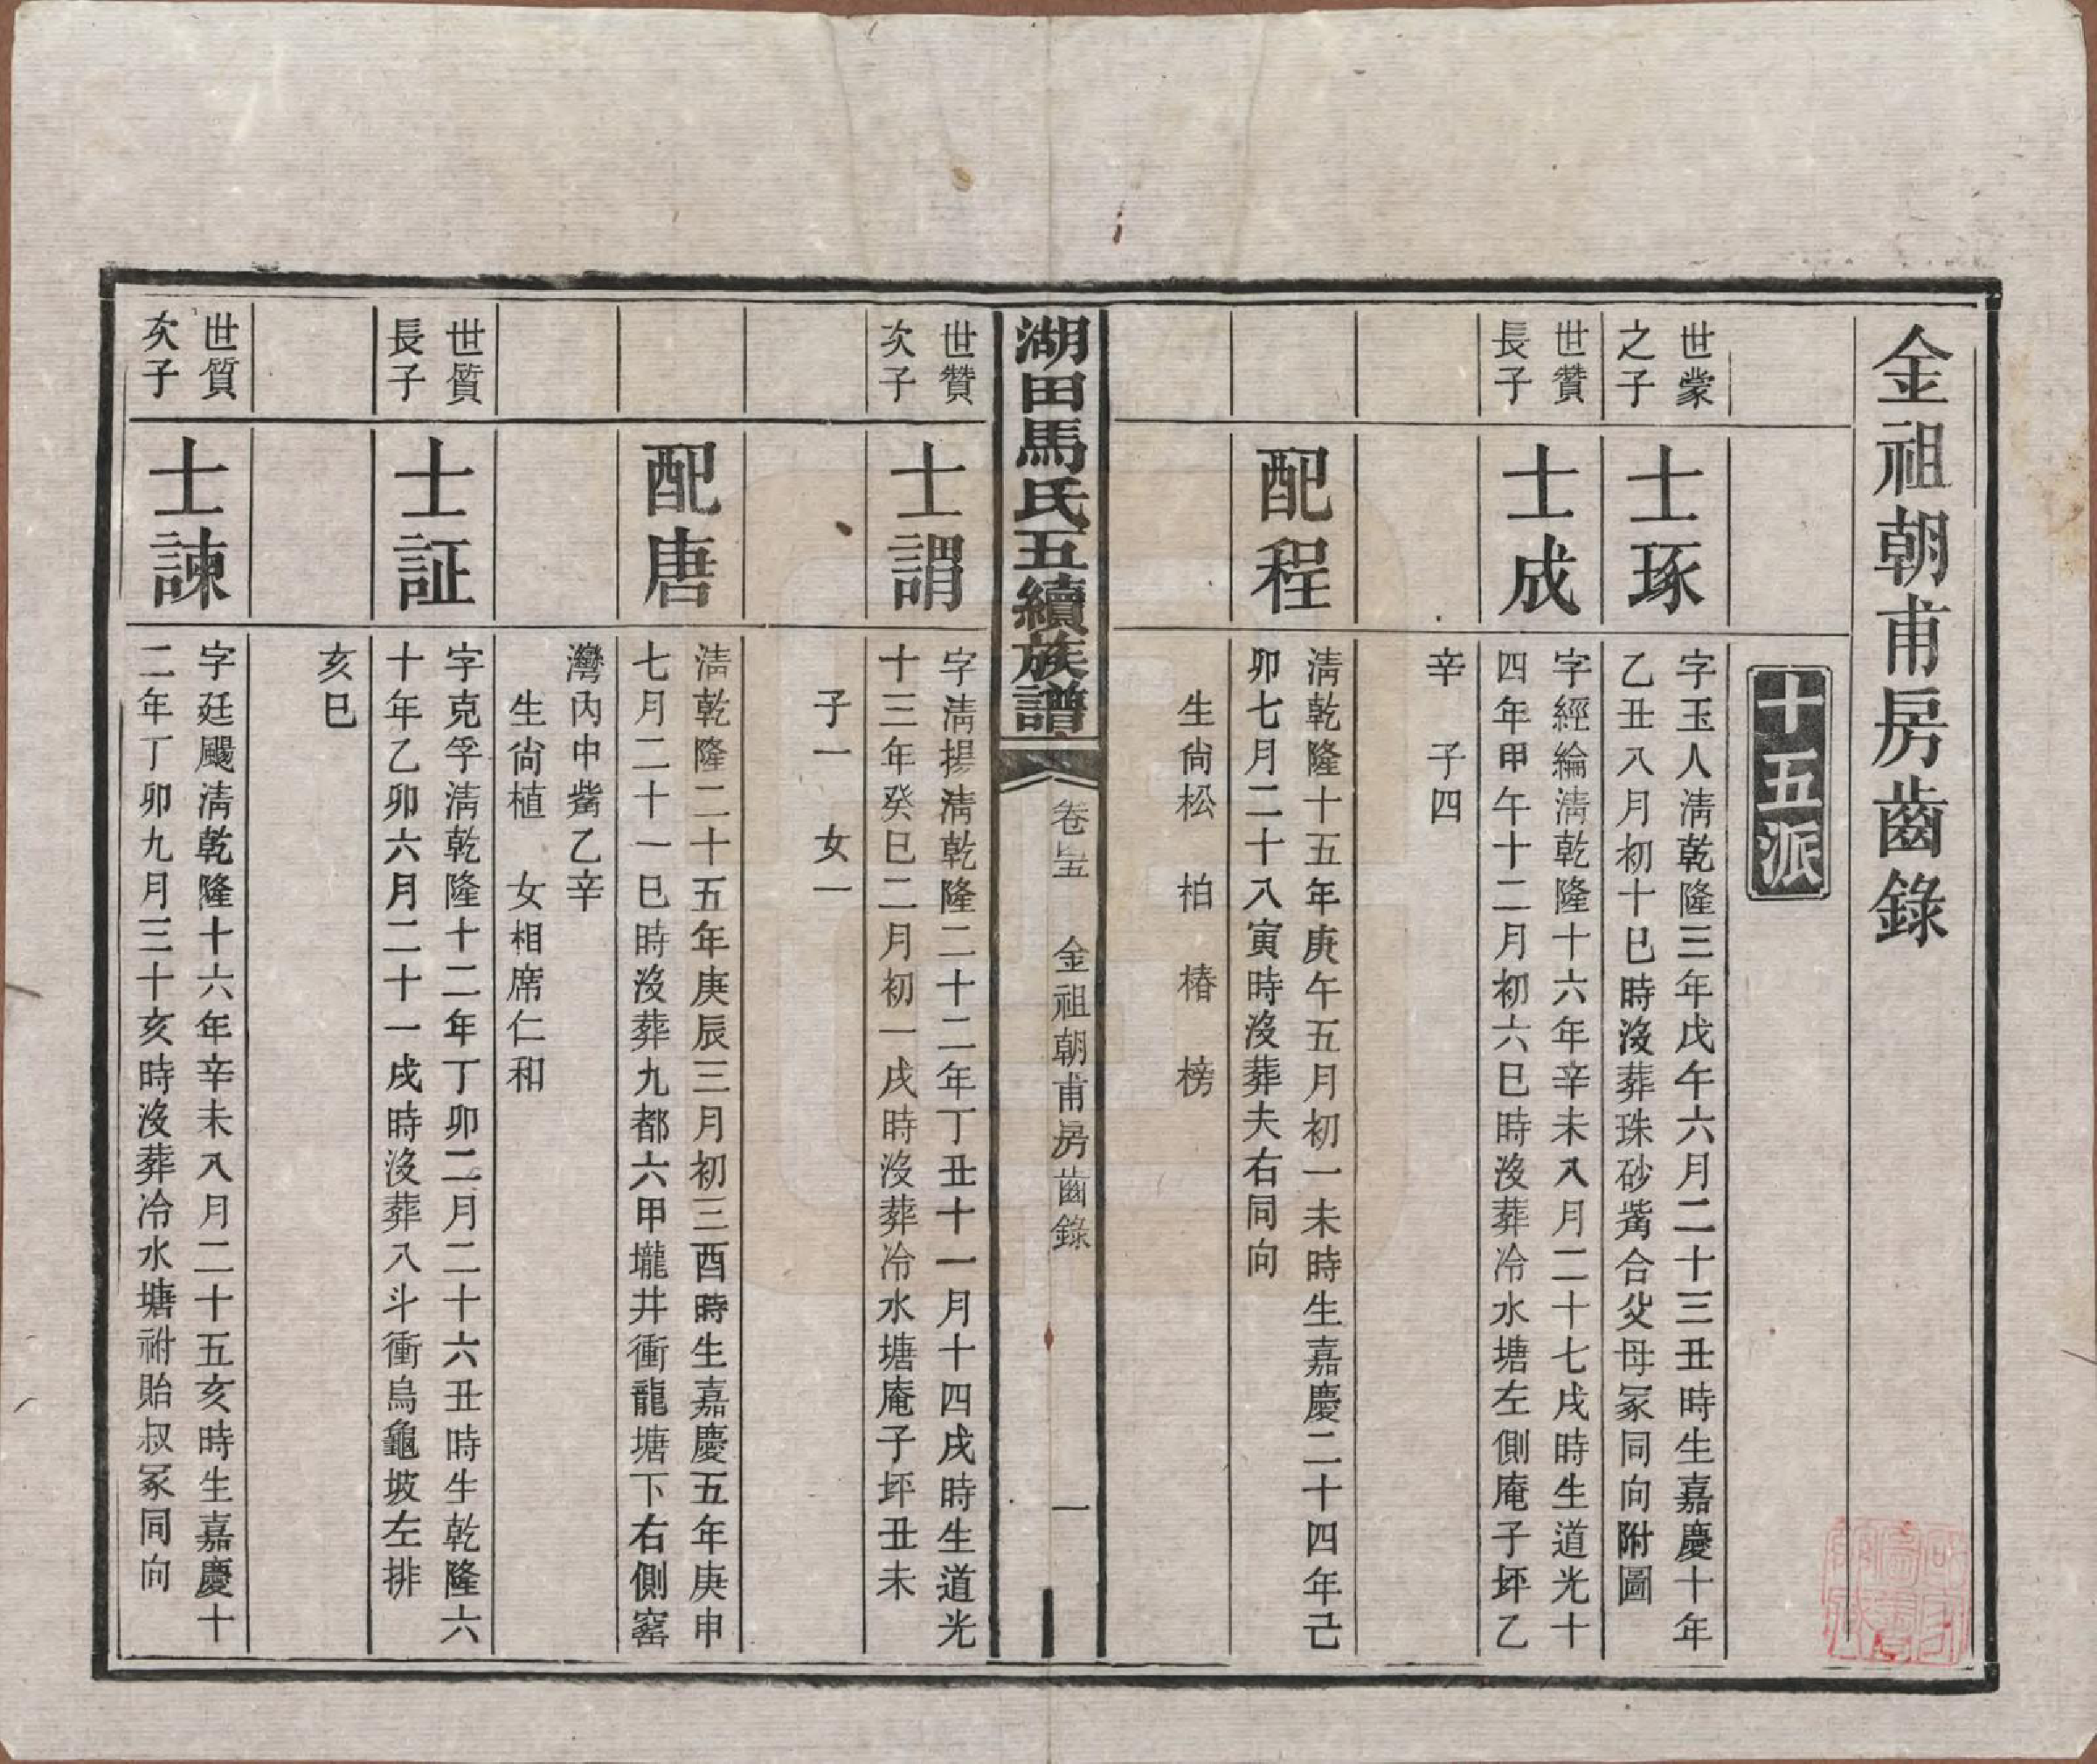 金祖朝甫房齒錄
十五派
世蒙
之子
士琢
字玉人淸乾隆三年戊午六月二十三丑時生嘉慶十年
乙丑八月初十巳時沒葬珠砂觜合父母冢同向附圖
世贊
長子
士成
字經綸淸乾隆十六年辛未八月二十七戌時生道光十
四年甲午十二月初六巳時沒葬冷水塘左側庵子坪乙
辛　子四
配程
淸乾隆十五年庚午五月初一未時生嘉慶二十四年己
卯七月二十八寅時沒葬夫右同向
生尙松　柏　椿　榜
湖田馬氏五續族譜
卷四五　金祖朝甫房齒錄　一
世贊
次子
士謂
字淸揚淸乾隆二十二年丁丑十一月十四戌時生道光
十三年癸巳二月初一戌時沒葬冷水塘庵子坪丑未
子一　女一
配唐
淸乾隆二十五年庚辰三月初三酉時生嘉慶五年庚申
七月二十一巳時沒葬九都六甲壠井衝龍塘下右側窰
灣內中觜乙辛
生尙植　女相席仁和
世質
長子
士証
字克孚淸乾隆十二年丁卯二月二十六丑時生乾隆六
十年乙卯六月二十一戌時沒葬八斗衝烏龜坡左排
亥巳
世質
次子
士諫
字廷颺淸乾隆十六年辛未八月二十五亥時生嘉慶十
二年丁卯九月三十亥時沒葬冷水塘祔貽叔冢同向